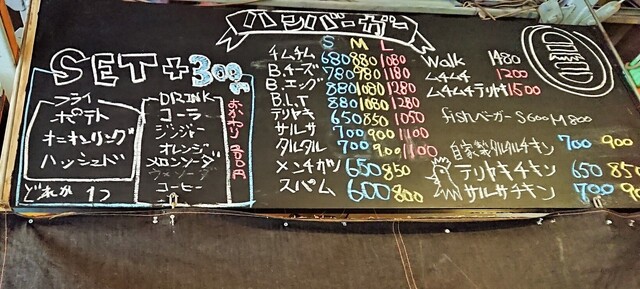 ハンバーガー
SET+300円
フライ
ポテト
オニオンリング
ハッシュド
どれか 1つ
DRINK
コーラ
ジンジャー
オレンジ
メロンソーダ
コーヒー
おかわり 200円
S M L
チムチム 680 880 1080
B.チーズ 780 980 1180
B.エッグ 880 1080 1280
B.L.T 880 1080 1280
テリヤキ 650 850 1050
サルサ 700 900 1100
タルタル 700 900 1100
メンチカツ 650 850
スパム 600 800
Walk 1480
ムチムチ 1200
ムチムチテリヤキ 1500
fishバーガー S600 M800
自家製タルタルチキン 700 900
テリヤキチキン 650 850
サルサチキン 700 90